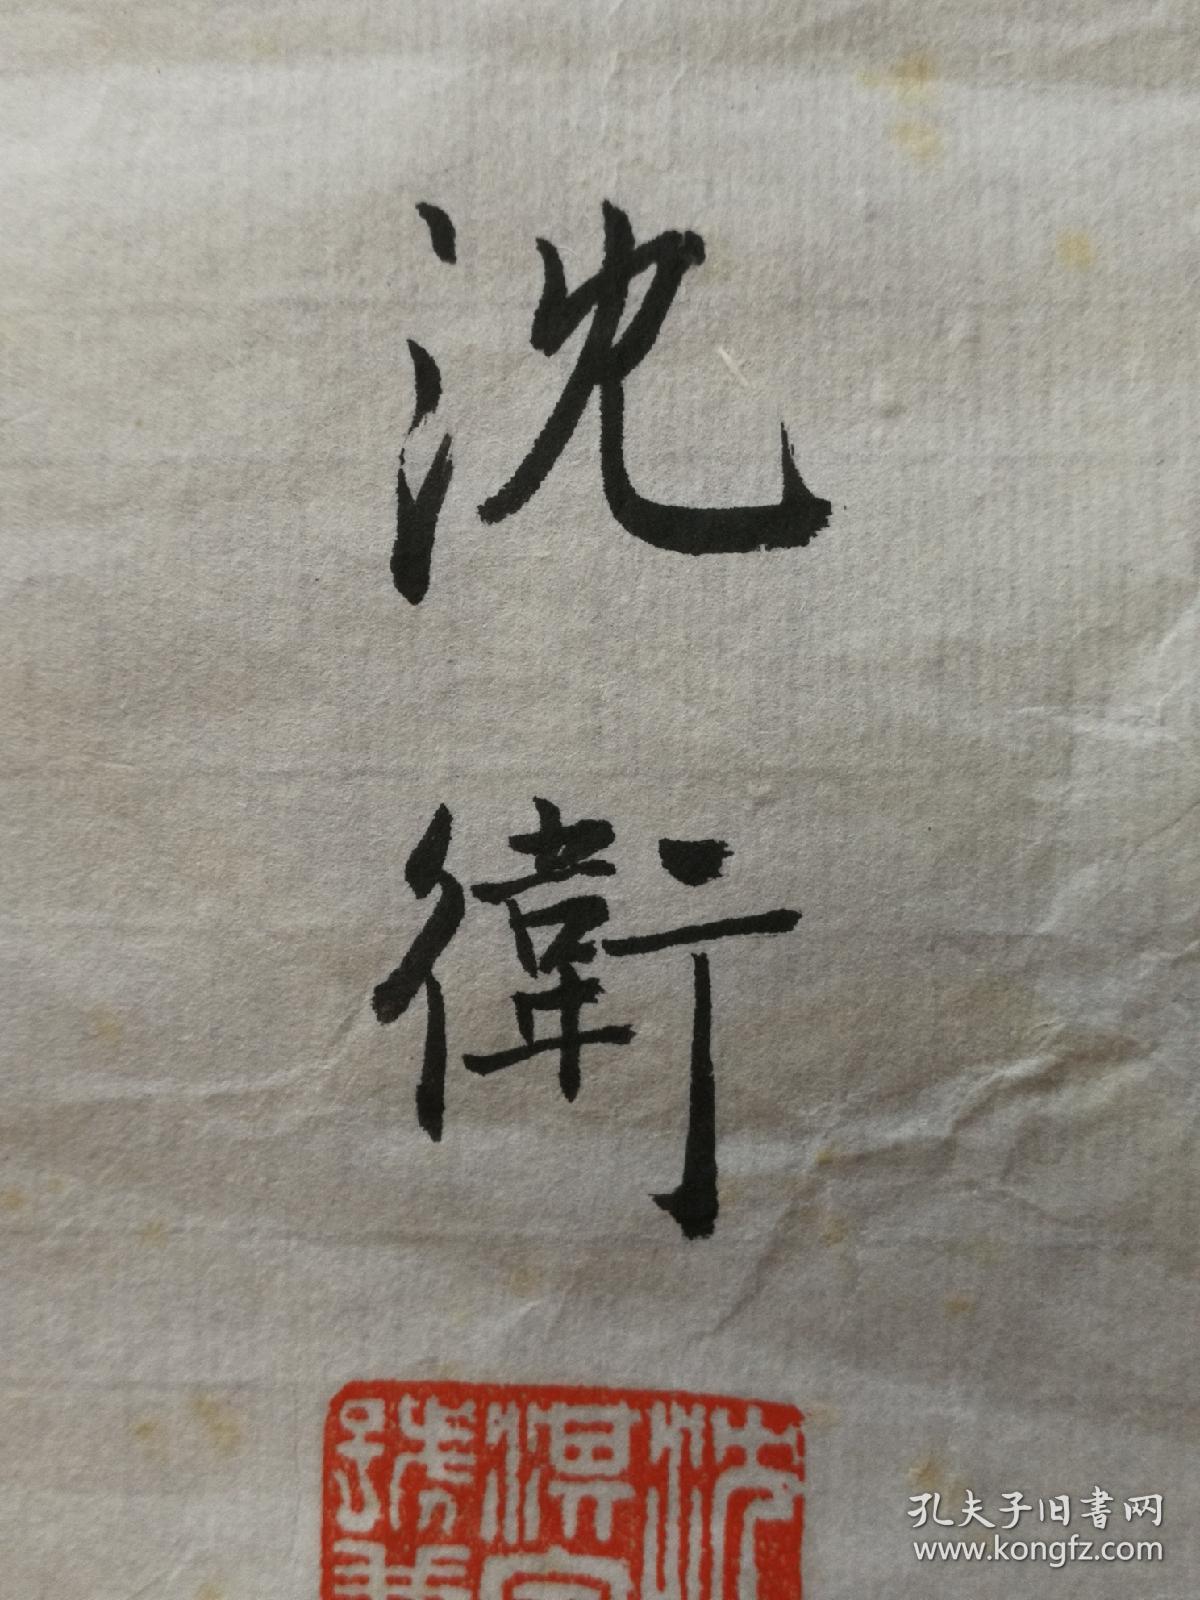 沈
衛
孔夫子旧書网
www.kongfz.com